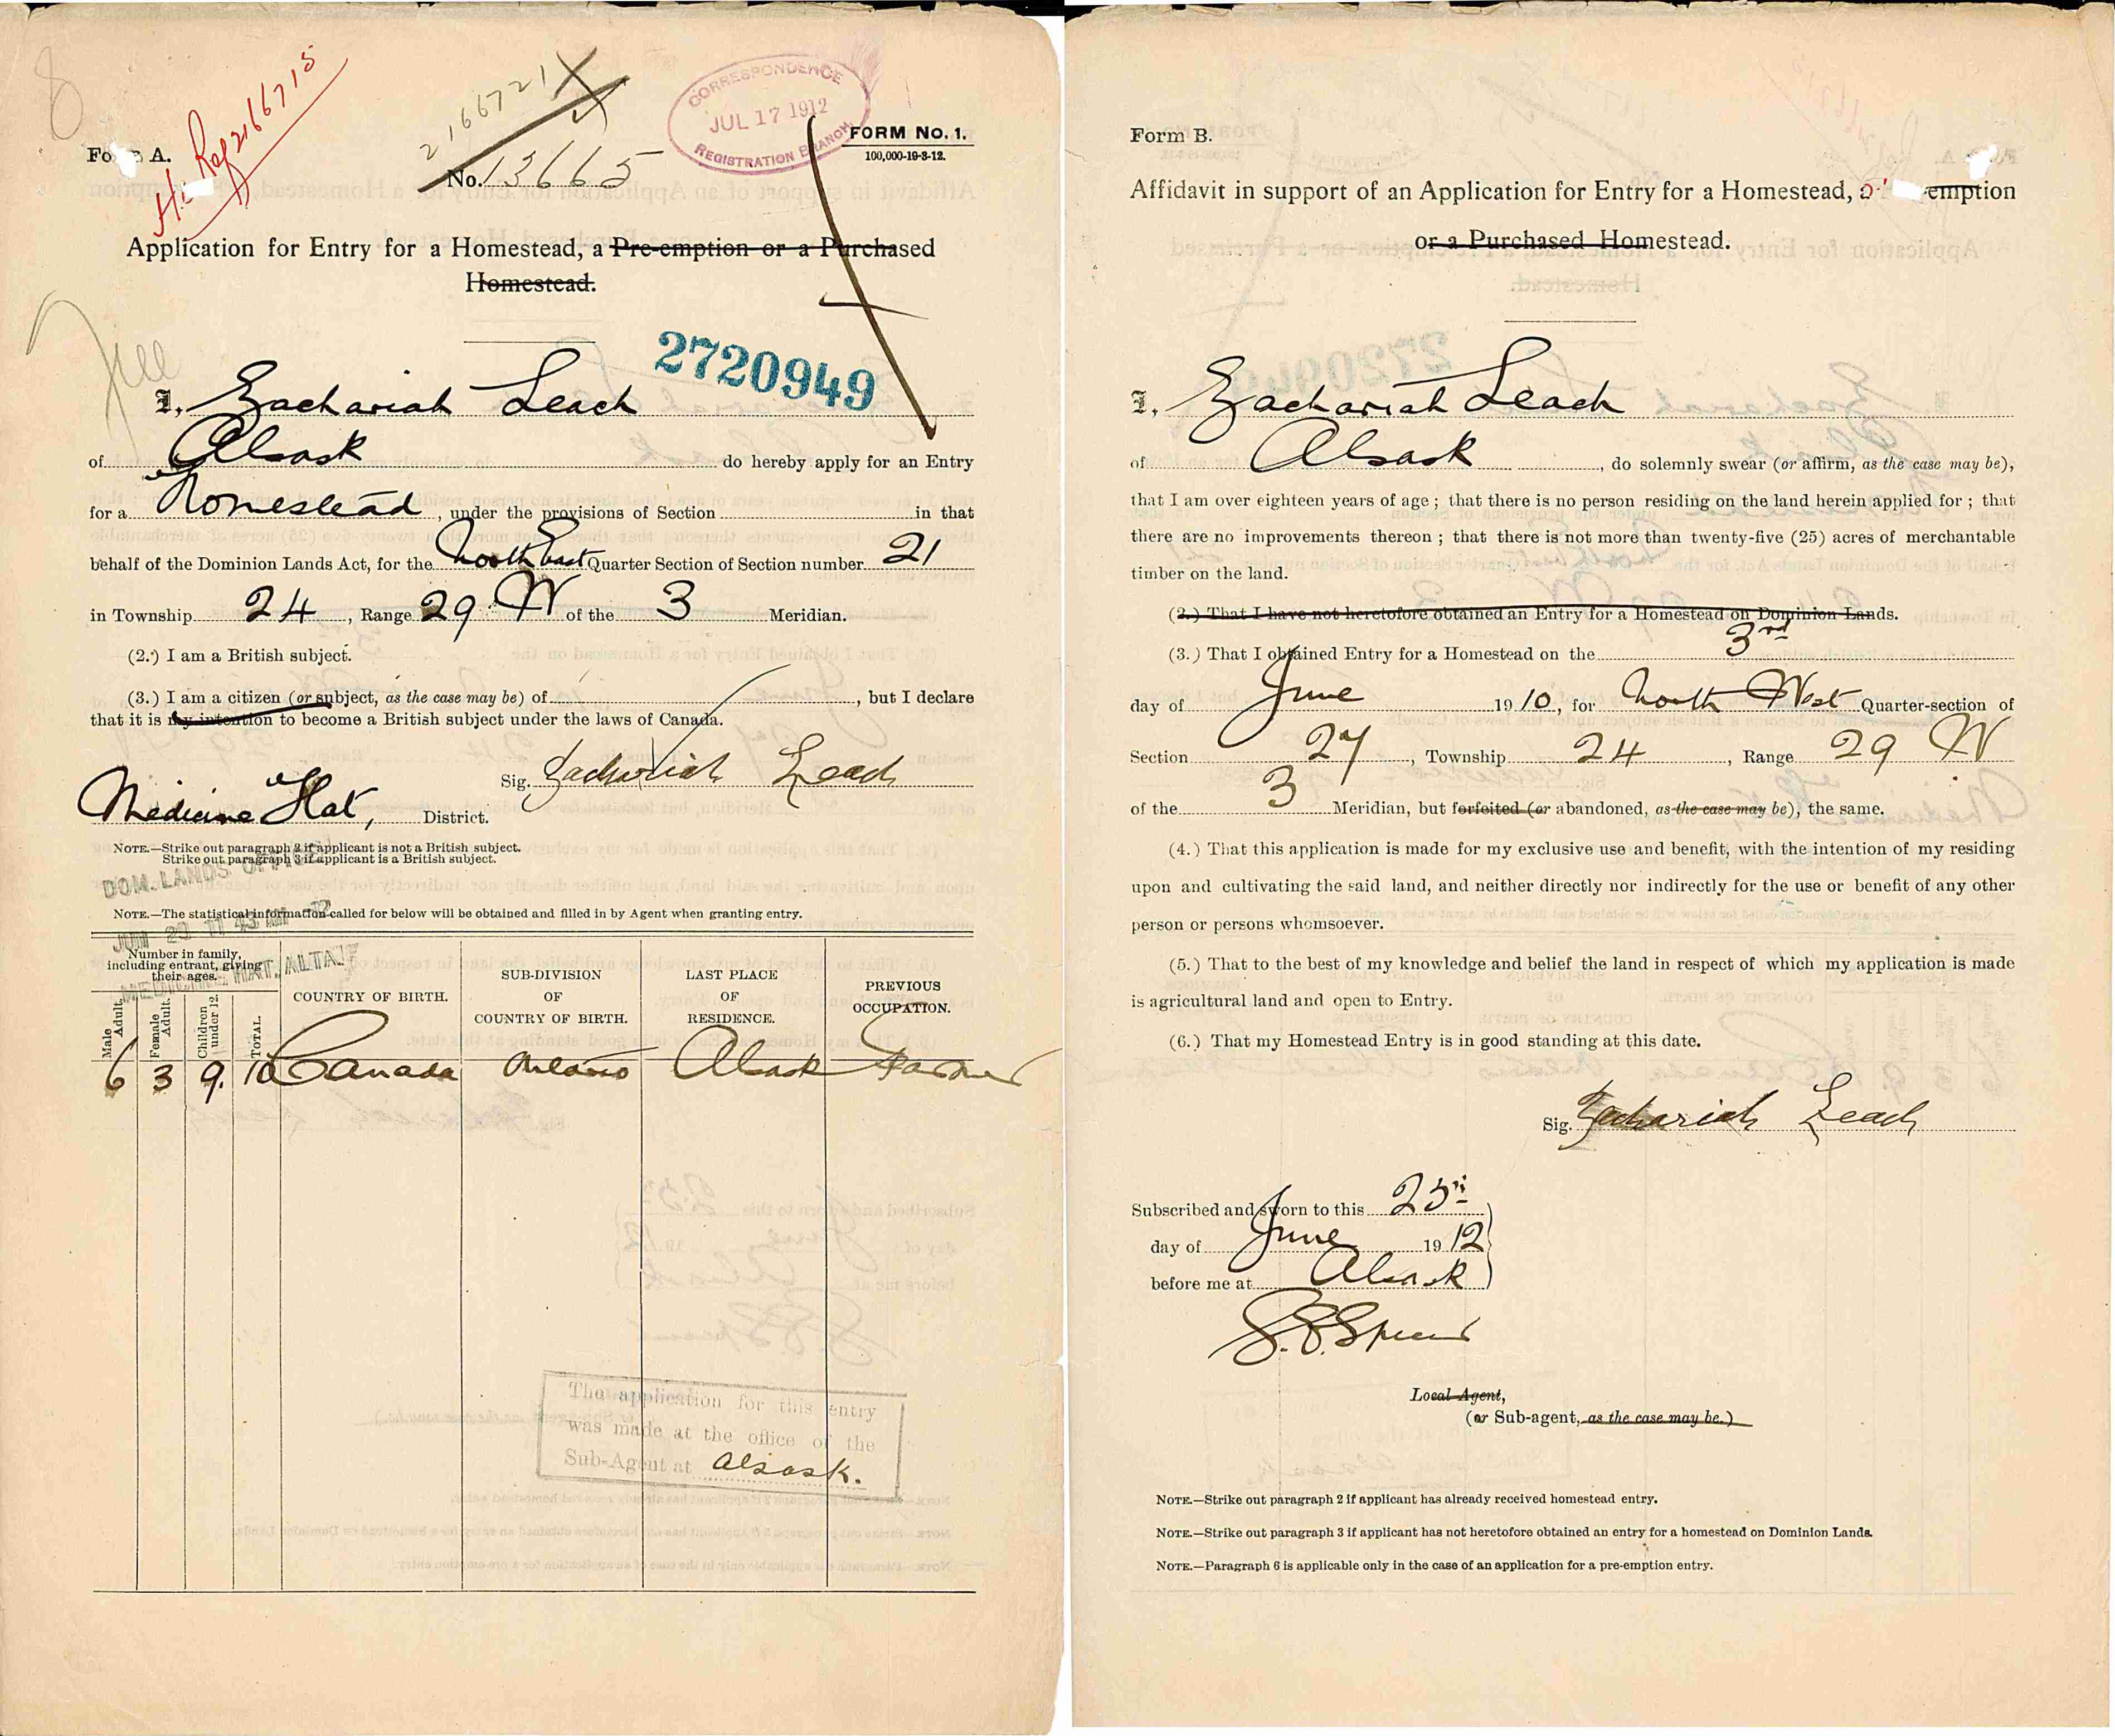 8
2166721
CORRESPONDENCE
JUL 17 1912
REGISTRATION BRANCH
Ref 2166715
Form A.
No. 13665
FORM No. 1.
100,000-19-3-12.
Application for Entry for a Homestead, a Pre-emption or a Purchased
Homestead.
2720949
I, Zachariah Leach
of Alsask do hereby apply for an Entry
for a Homestead, under the provisions of Section in that
behalf of the Dominion Lands Act, for the North East Quarter Section of Section number 21
in Township 24, Range 29 W of the 3 Meridian.
(2.) I am a British subject.
(3.) I am a citizen (or subject, as the case may be) of , but I declare
that it is my intention to become a British subject under the laws of Canada.
Sig. Zachariah Leach
Medicine Hat, District.
NOTE.—Strike out paragraph 2 if applicant is not a British subject.
Strike out paragraph 3 if applicant is a British subject.
DOM. LANDS OFFICE
NOTE.—The statistical information called for below will be obtained and filled in by Agent when granting entry.
MEDICINE HAT, ALTA.
Number in family, including entrant, giving their ages.
Male Adult. Female Adult. Children under 12. TOTAL.
COUNTRY OF BIRTH.
SUB-DIVISION OF COUNTRY OF BIRTH.
LAST PLACE OF RESIDENCE.
PREVIOUS OCCUPATION.
6 3 9. Canada Ontario Alsask Farmer
The application for this entry
was made at the office of the
Sub-Agent at Alsask.
Form B.
Affidavit in support of an Application for Entry for a Homestead, emption
or a Purchased Homestead.
I, Zachariah Leach
of Alsask, do solemnly swear (or affirm, as the case may be),
that I am over eighteen years of age; that there is no person residing on the land herein applied for; that
there are no improvements thereon; that there is not more than twenty-five (25) acres of merchantable
timber on the land.
(2.) That I have not heretofore obtained an Entry for a Homestead on Dominion Lands.
(3.) That I obtained Entry for a Homestead on the 3rd
day of June 1910, for North West Quarter-section of
Section 27, Township 24, Range 29 W
of the 3 Meridian, but forfeited (or abandoned, as the case may be), the same.
(4.) That this application is made for my exclusive use and benefit, with the intention of my residing
upon and cultivating the said land, and neither directly nor indirectly for the use or benefit of any other
person or persons whomsoever.
(5.) That to the best of my knowledge and belief the land in respect of which my application is made
is agricultural land and open to Entry.
(6.) That my Homestead Entry is in good standing at this date.
Sig. Zachariah Leach
Subscribed and sworn to this 25th
day of June 1912
before me at Alsask
Local Agent,
(or Sub-agent, as the case may be.)
NOTE.—Strike out paragraph 2 if applicant has already received homestead entry.
NOTE.—Strike out paragraph 3 if applicant has not heretofore obtained an entry for a homestead on Dominion Lands.
NOTE.—Paragraph 6 is applicable only in the case of an application for a pre-emption entry.